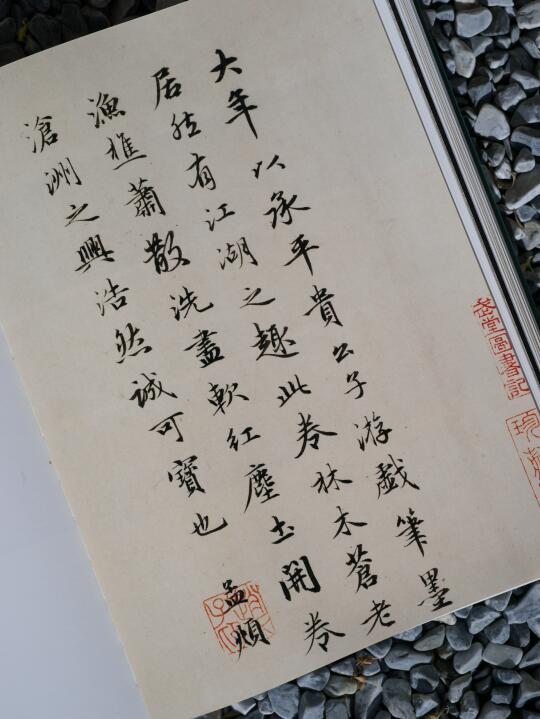 大年以承平貴公子游戲筆墨
居然有江湖之趣此卷林木蒼老
漁樵蕭散洗盡軟紅塵土開卷
滄洲之興浩然誠可寶也
孟頫
堂圖書記